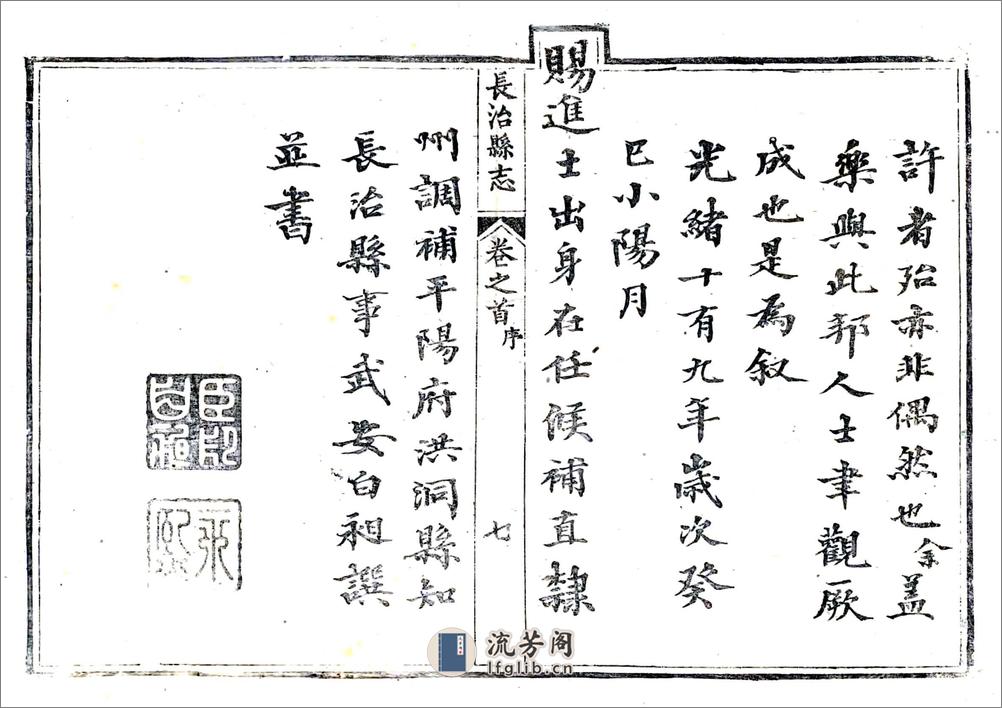 許者殆亦非偶然也余蓋
樂與此邦人士聿觀厥
成也是為叙
光緒十有九年歲次癸
巳小陽月
賜進士出身在任候補直隸
長治縣志
卷之首 序
七
州調補平陽府洪洞縣知
長治縣事武安白昶譔
並書
臣印白昶
永熙
流芳阁
lfglib.cn